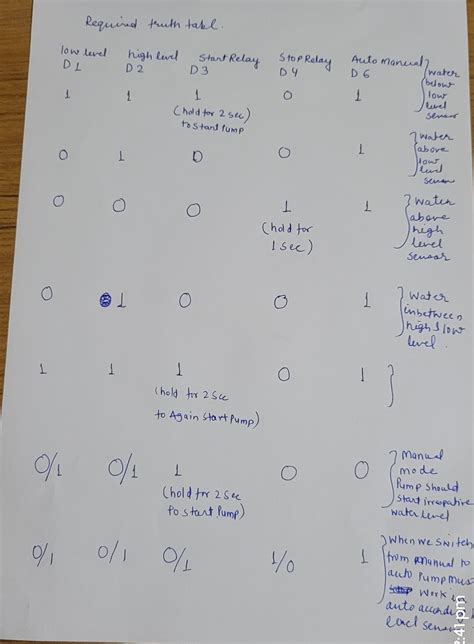 Required truth tabl.
low level high level Start Relay Stop Relay Auto Manual
D 1 D 2 D 3 D 4 D 6
1 1 1 0 1 } water below low level sensor
(hold for 2 sec) to start Pump
0 1 0 0 1 } Water above low level sensor
0 0 0 1 1 } Water above high level sensor
(hold for 1 sec)
0 1 0 0 1 } Water inbetween high & low level.
1 1 1 0 1 }
(hold for 2 sec to Again start Pump)
0/1 0/1 1 0 0 } Manual mode Pump should start irrespative water level
(hold for 2 sec to start Pump)
0/1 0/1 0/1 1/0 1 } When we switch from Manual to auto Pump must work in auto accordin level sensor